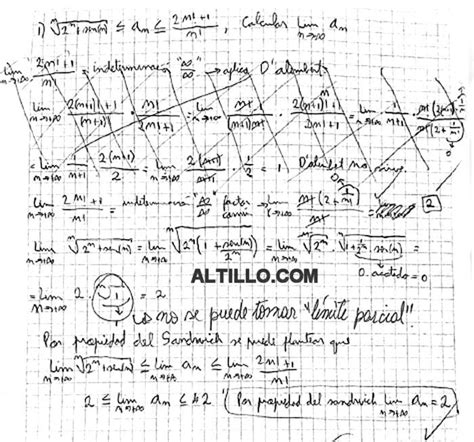 1) ⁿ√(2ⁿ+sen(n)) ≤ aₙ ≤ (2n!+1)/n! , Calcular lim n→+∞ aₙ
lim n→+∞ (2n!+1)/n! = indeterminación "∞/∞" → aplico D'alembert
lim n→+∞ (2(n+1)!+1)/(n+1)! · n!/(2n!+1) = lim n→+∞
= lim n→+∞ 2(n+1)!/2 = lim n→+∞ · 1/2 = 1 D'alembert no sirve
lim n→+∞ (2n!+1)/n! = indeterminación "∞/∞" factor común = lim n→+∞ n!(2+1/n!)/n! = 2
lim n→+∞ ⁿ√(2ⁿ+sen(n)) = lim n→+∞ ⁿ√(2ⁿ(1+sen(n)/2ⁿ)) = lim n→+∞ ⁿ√2ⁿ · ⁿ√(1+1/2ⁿ·sen(n)) =
0.acotado = 0
ALTILLO.COM
= lim n→+∞ 2 ⁿ√1 = 2
↳ no se puede tomar "límite parcial".
Por propiedad del Sandwich se puede plantear que
lim n→+∞ ⁿ√(2ⁿ+sen(n)) ≤ lim n→+∞ aₙ ≤ lim n→+∞ (2n!+1)/n!
2 ≤ lim n→+∞ aₙ ≤ 2 Por propiedad del sandwich lim n→+∞ aₙ = 2